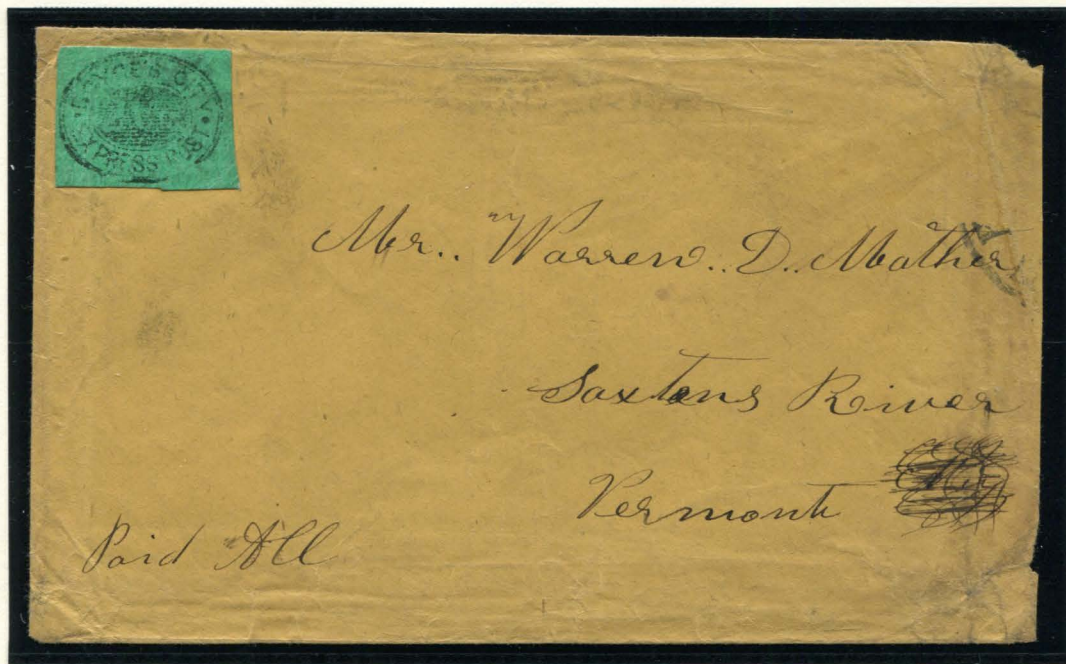 BOYCE'S CITY
EXPRESS POST
Mr.. Warren.. D.. Mather
Saxtons River
Vermont
Paid All